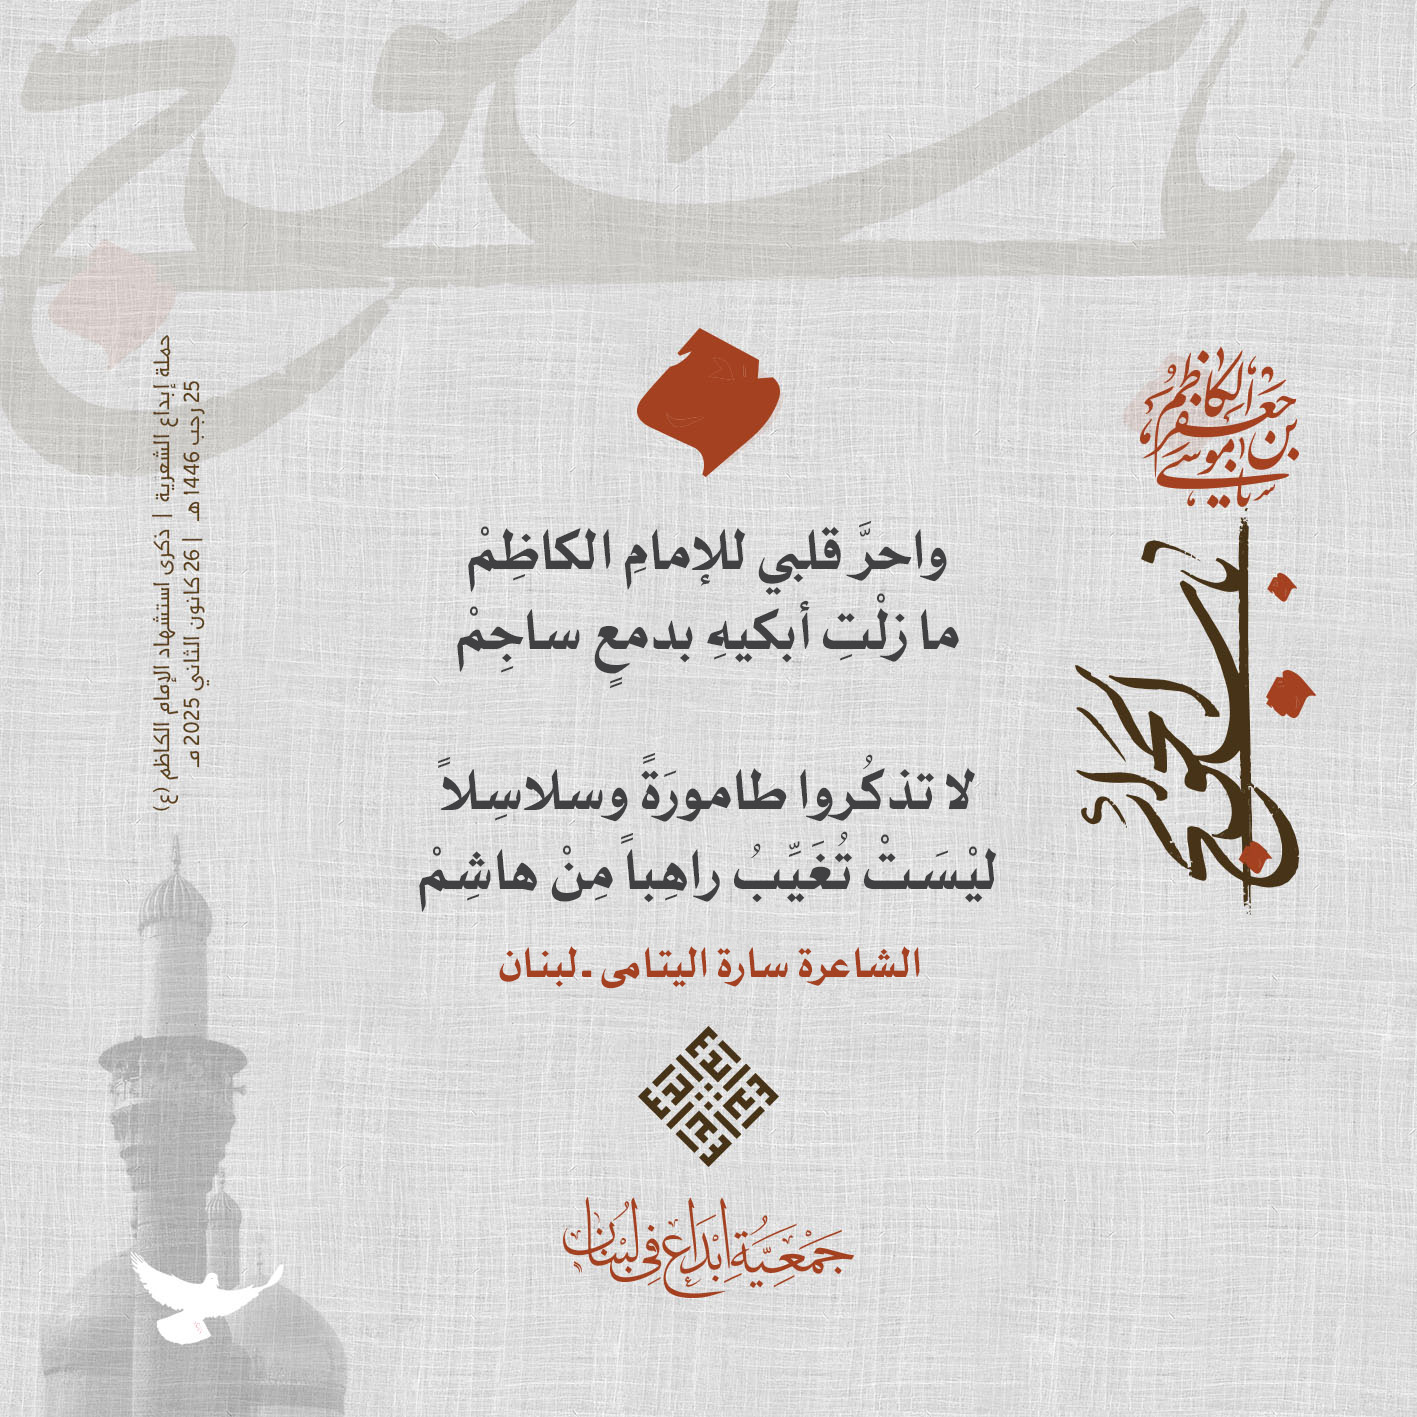 يا موسى بن جعفر الكاظم
يا باب الحوائج
واحرَّ قلبي للإمامِ الكاظِمْ
ما زلْتِ أبكيهِ بدمعٍ ساجِمْ
لا تذكُروا طامورَةً وسلاسِلاً
ليْسَتْ تُغَيِّبُ راهِباً مِنْ هاشِمْ
الشاعرة سارة اليتامى ـ لبنان
جَمْعِيَّةُ إِبْدَاع فِي لُبْنَان
حملة إبداع الشعرية | ذكرى استشهاد الإمام الكاظم (ع)
25 رجب 1446 هـ | 26 كانون الثاني 2025 مـ